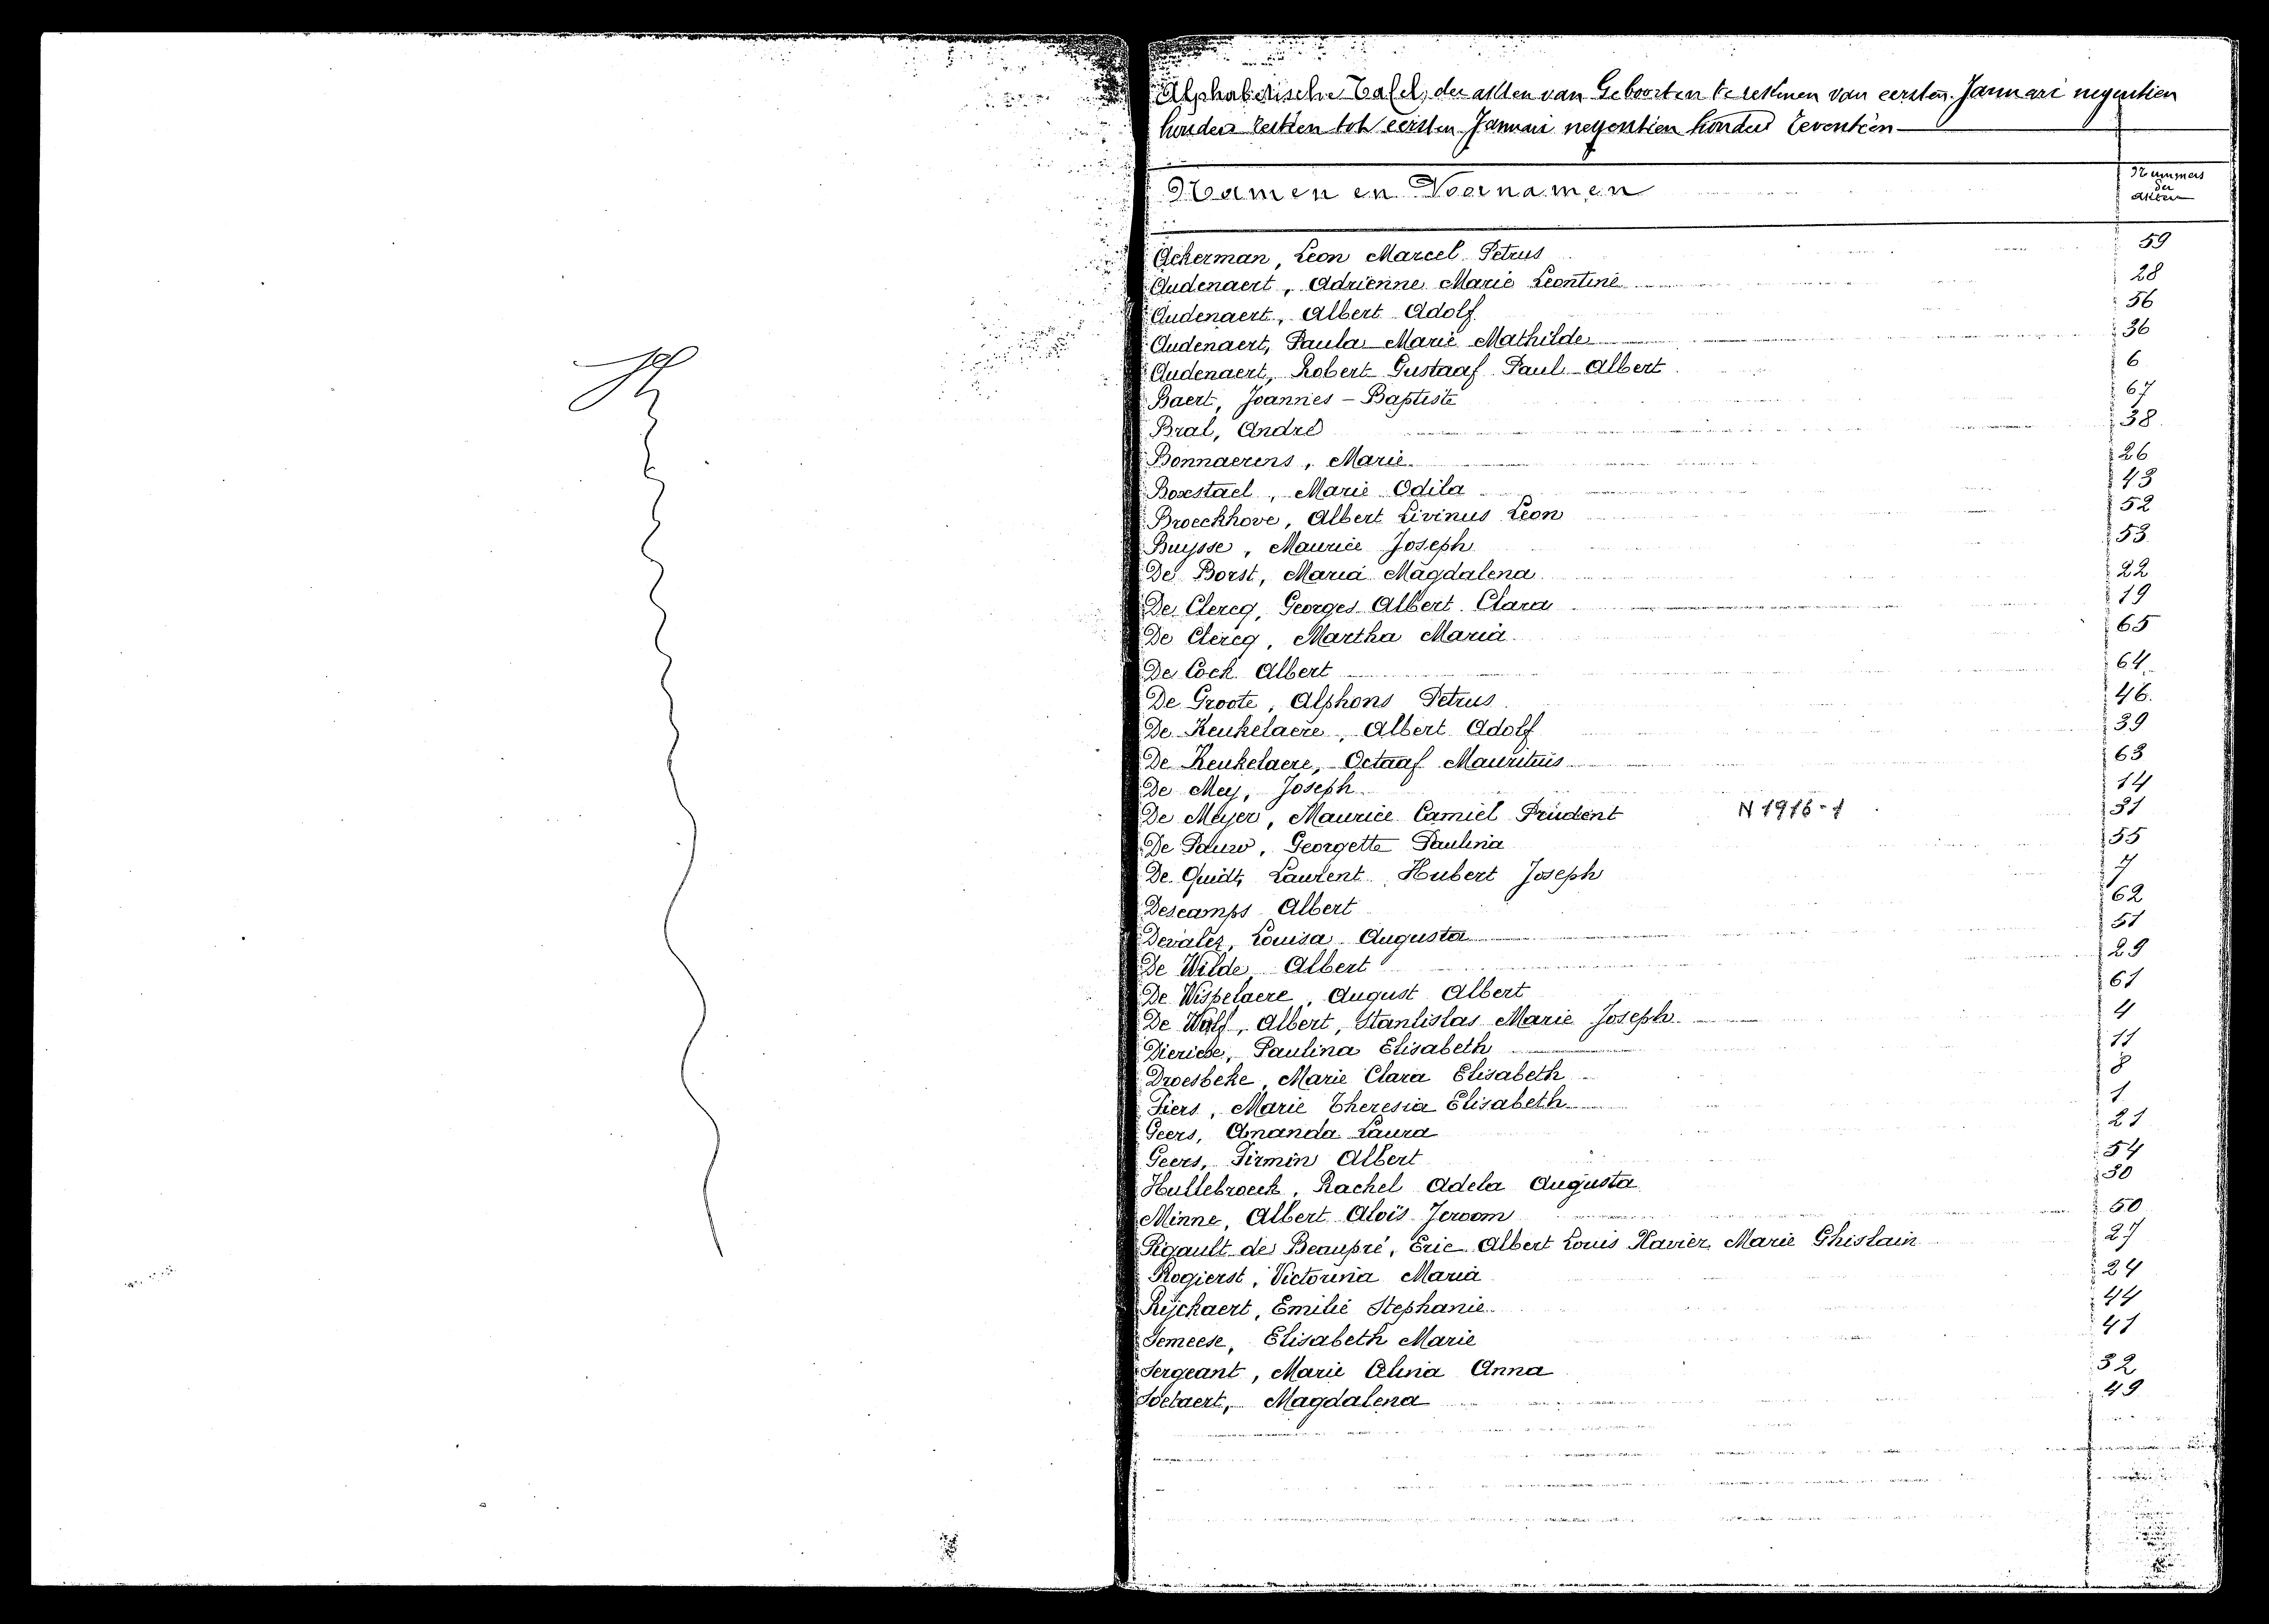 Alphabetische Tafel der akten van Geboorten te rekenen van eersten Januari negentien
honderd zestien tot eersten Januari negentien honderd zeventien
Namen en Voornamen
Nummers
der
akten
Ackerman, Leon Marcel Petrus 59
Audenaert, Adrienne Marie Leontine 28
Audenaert, Albert Adolf 56
Audenaert, Paula Marie Mathilde 36
Audenaert, Robert Gustaaf Paul Albert 6
Baert, Joannes - Baptiste 67
Bral, André 38
Bonnaerens, Marie 26
Boxstael, Marie Odila 43
Broeckhove, Albert Livinus Leon 52
Buysse, Maurice Joseph 53
De Borst, Maria Magdalena 22
De Clercq, Georges Albert Clara 19
De Clercq, Martha Maria 65
De Cock Albert 64
De Groote, Alphons Petrus 46
De Keukelaere, Albert Adolf 39
De Keukelaere, Octaaf Mauritius 63
De Mey, Joseph 14
De Meyer, Maurice Camiel Prudent N 1916-1 31
De Pauw, Georgette Paulina 55
De Quidt, Laurent Hubert Joseph 7
Descamps Albert 62
Devalez, Louisa Augusta 51
De Wilde Albert 29
De Wispelaere, August Albert 61
De Wolf, Albert, Stanlislas Marie Joseph 4
Dierickx, Paulina Elisabeth 11
Droesbeke, Marie Clara Elisabeth 8
Fiers, Marie Theresia Elisabeth 1
Geers, Amanda Laura 21
Geers, Firmin Albert 54
Hullebroeck, Rachel Adela Augusta 30
Minne, Albert Aloïs Jeroom 50
Rigault de Beaupré, Eric Albert Louis Xavier Marie Ghislain 27
Rogierst, Victorina Maria 24
Rijckaert, Emilie Stephanie 44
Semeese, Elisabeth Marie 41
Sergeant, Marie Alina Anna 32
Soetaert, Magdalena 49